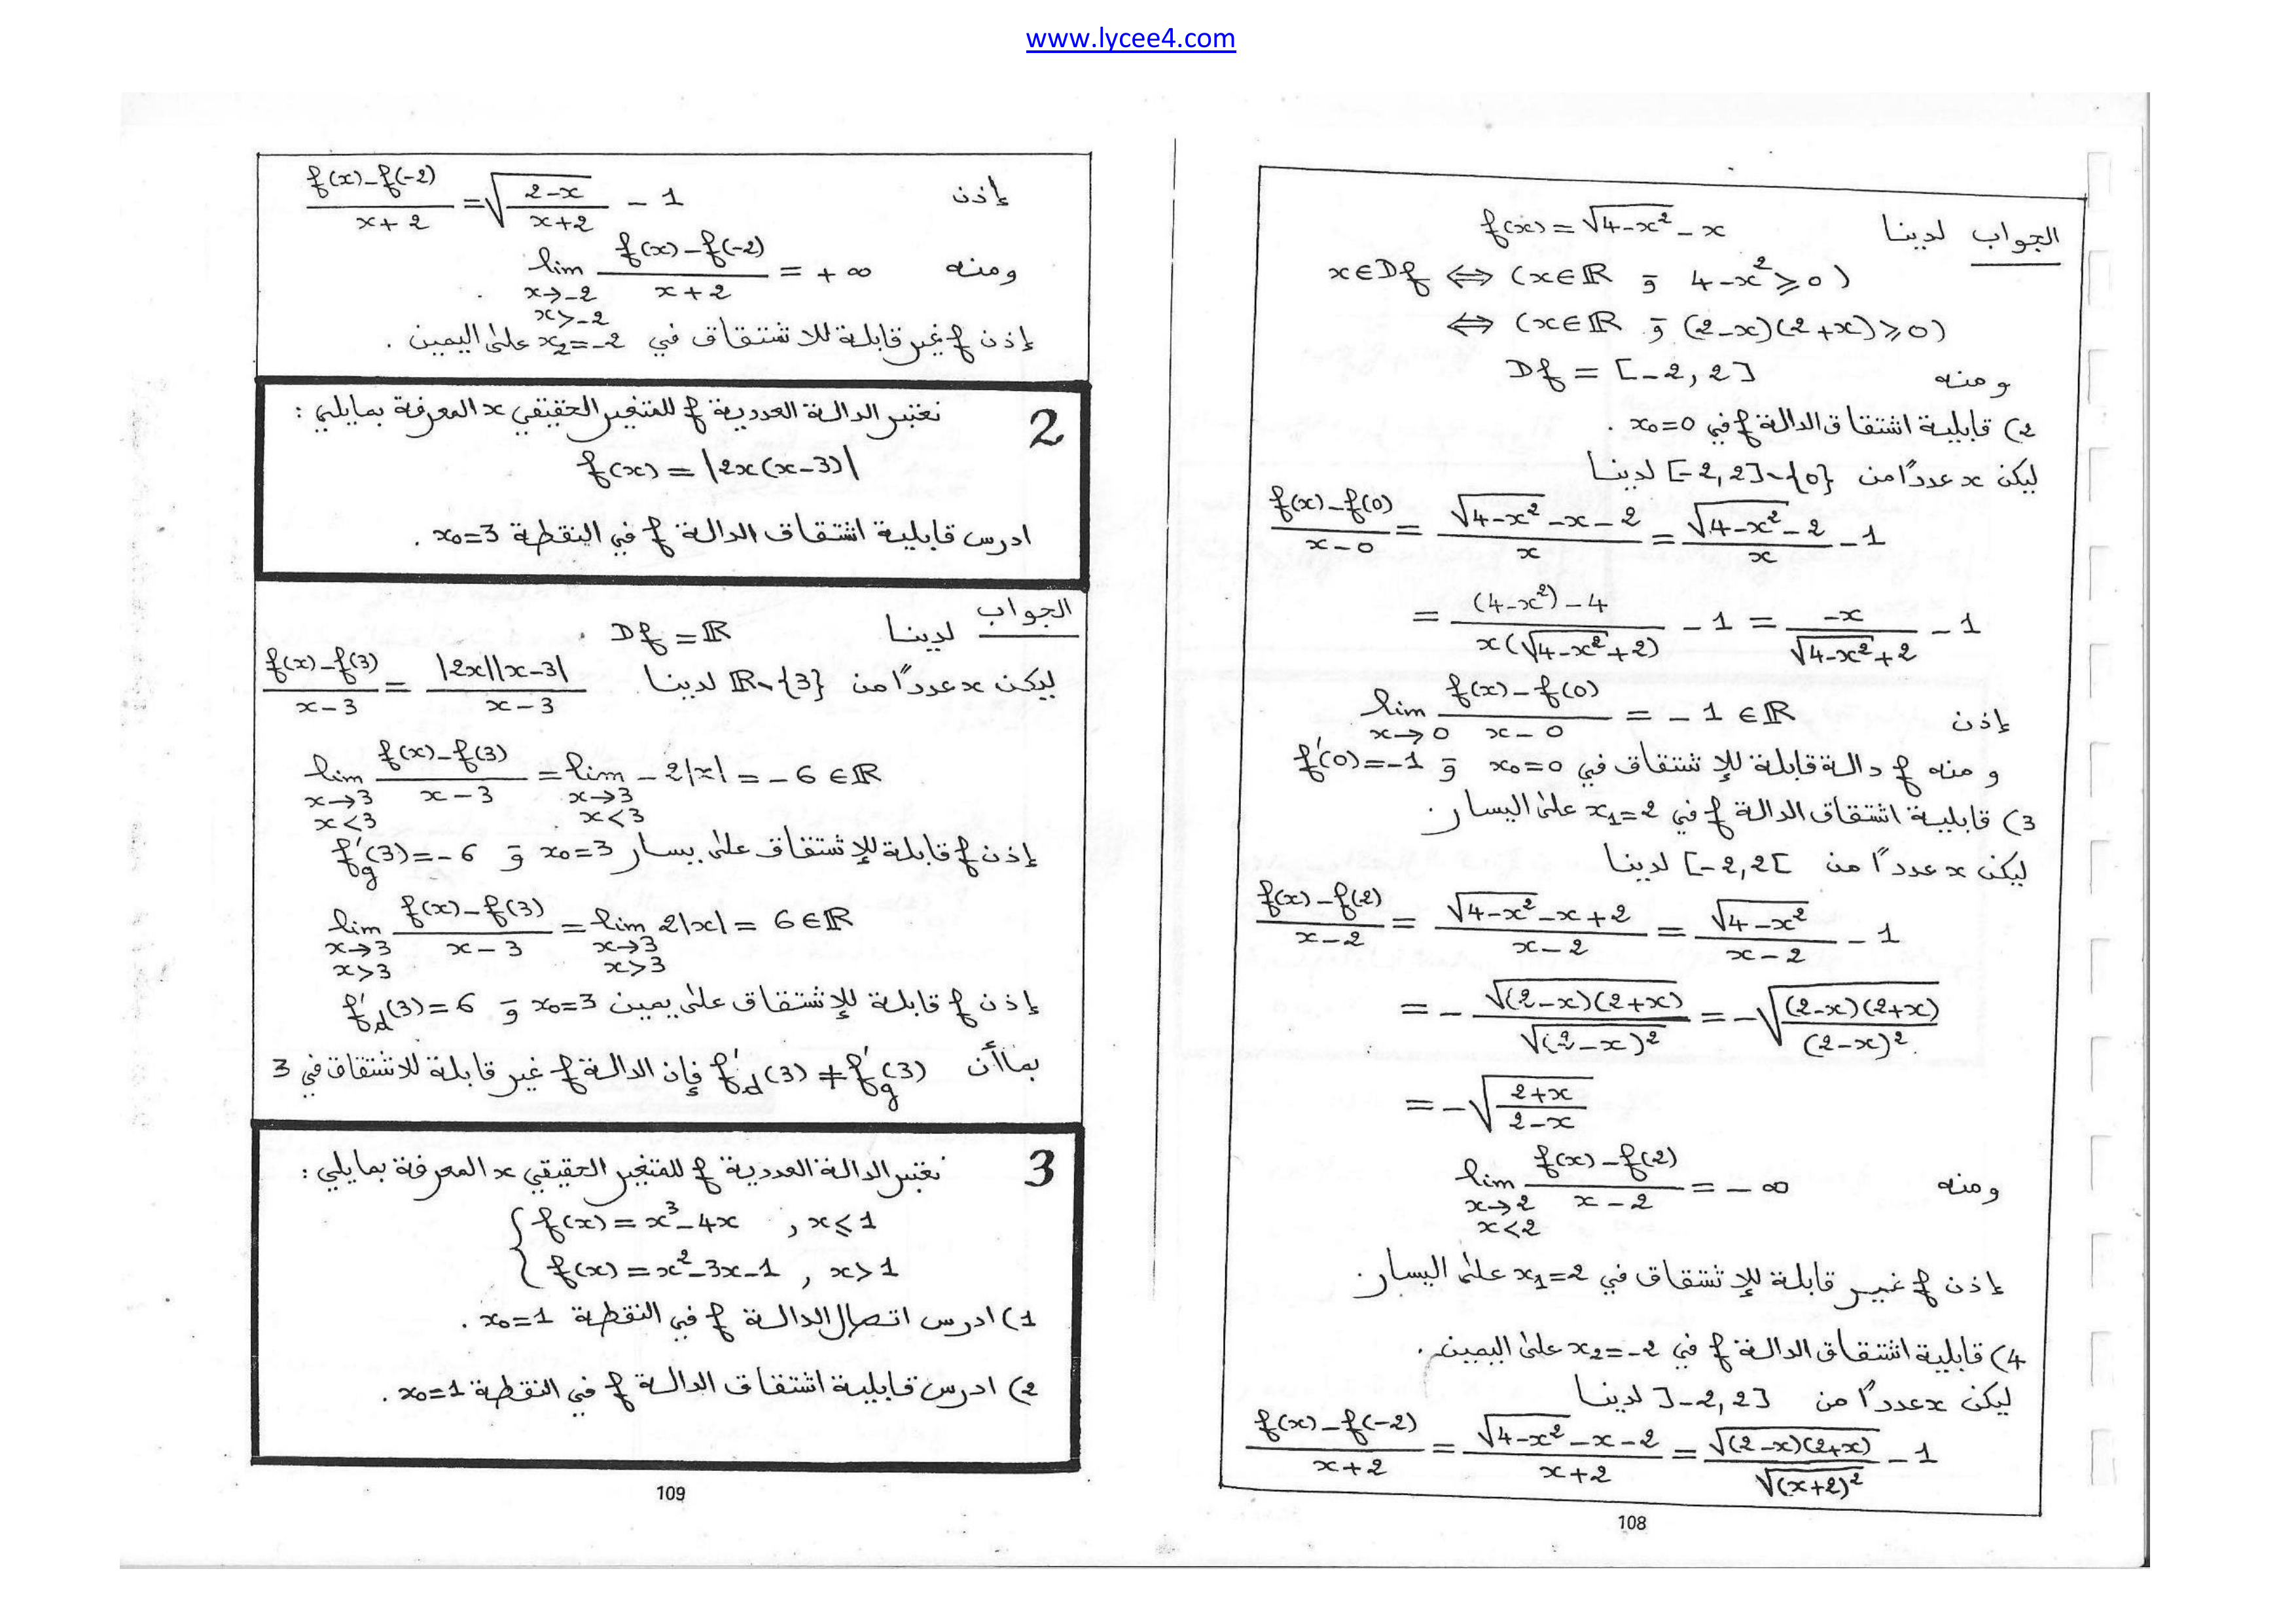 www.lycee4.com
الجواب لدينا f(x) = √(4-x²) - x
x∈Df ⟺ (x∈ℝ و 4-x² ⩾ 0)
⟺ (x∈ℝ و (2-x)(2+x) ⩾ 0)
ومنه Df = [-2, 2]
2) قابلية اشتقاق الدالة f في x₀=0 .
ليكن x عددًا من [-2,2]∖{0} لدينا
(f(x)-f(0))/(x-0) = (√(4-x²) -x-2)/x = (√(4-x²) -2)/x - 1
= ((4-x²)-4)/(x(√(4-x²)+2)) - 1 = -x/(√(4-x²)+2) - 1
إذن lim x→0 (f(x)-f(0))/(x-0) = -1 ∈ℝ
ومنه f دالة قابلة للإشتقاق في x₀=0 و f'(0)=-1
3) قابلية اشتقاق الدالة f في x₁=2 على اليسار.
ليكن x عددًا من [-2,2[ لدينا
(f(x)-f(2))/(x-2) = (√(4-x²) -x+2)/(x-2) = √(4-x²)/(x-2) - 1
= - √((2-x)(2+x))/√((2-x)²) = -√((2-x)(2+x)/(2-x)²)
= -√((2+x)/(2-x))
ومنه lim x→2 x<2 (f(x)-f(2))/(x-2) = -∞
إذن f غير قابلة للإشتقاق في x₁=2 على اليسار.
4) قابلية اشتقاق الدالة f في x₂=-2 على اليمين.
ليكن x عددًا من ]-2,2] لدينا
(f(x)-f(-2))/(x+2) = (√(4-x²) -x-2)/(x+2) = √((2-x)(2+x))/√((x+2)²) - 1
108
إذن (f(x)-f(-2))/(x+2) = √((2-x)/(x+2)) - 1
ومنه lim x→-2 x>-2 (f(x)-f(-2))/(x+2) = +∞
إذن f غير قابلة للاشتقاق في x₂=-2 على اليمين .
2 نعتبر الدالة العددية f للمتغير الحقيقي x المعرفة بمايلي :
f(x) = |2x(x-3)|
ادرس قابلية اشتقاق الدالة f في النقطة x₀=3 .
الجواب لدينا Df = ℝ .
ليكن x عددًا من ℝ∖{3} لدينا (f(x)-f(3))/(x-3) = |2x||x-3|/(x-3)
lim x→3 x<3 (f(x)-f(3))/(x-3) = lim x→3 x<3 -2|x| = -6 ∈ℝ
إذن f قابلة للإشتقاق على يسار x₀=3 و f'g(3)=-6
lim x→3 x>3 (f(x)-f(3))/(x-3) = lim x→3 x>3 2|x| = 6 ∈ℝ
إذن f قابلة للإشتقاق على يمين x₀=3 و f'd(3)=6
بما أن f'd(3) ≠ f'g(3) فإن الدالة f غير قابلة للاشتقاق في 3
3 نعتبر الدالة العددية f للمتغير الحقيقي x المعرفة بمايلي :
{ f(x) = x³-4x , x⩽1
{ f(x) = x²-3x-1 , x>1
1) ادرس اتصال الدالة f في النقطة x₀=1 .
2) ادرس قابلية اشتقاق الدالة f في النقطة x₀=1 .
109